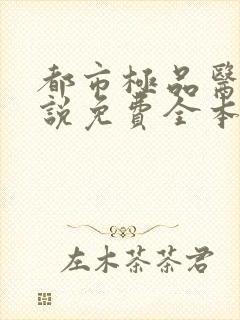 都市極品醫
說免費全本
左木茶茶君